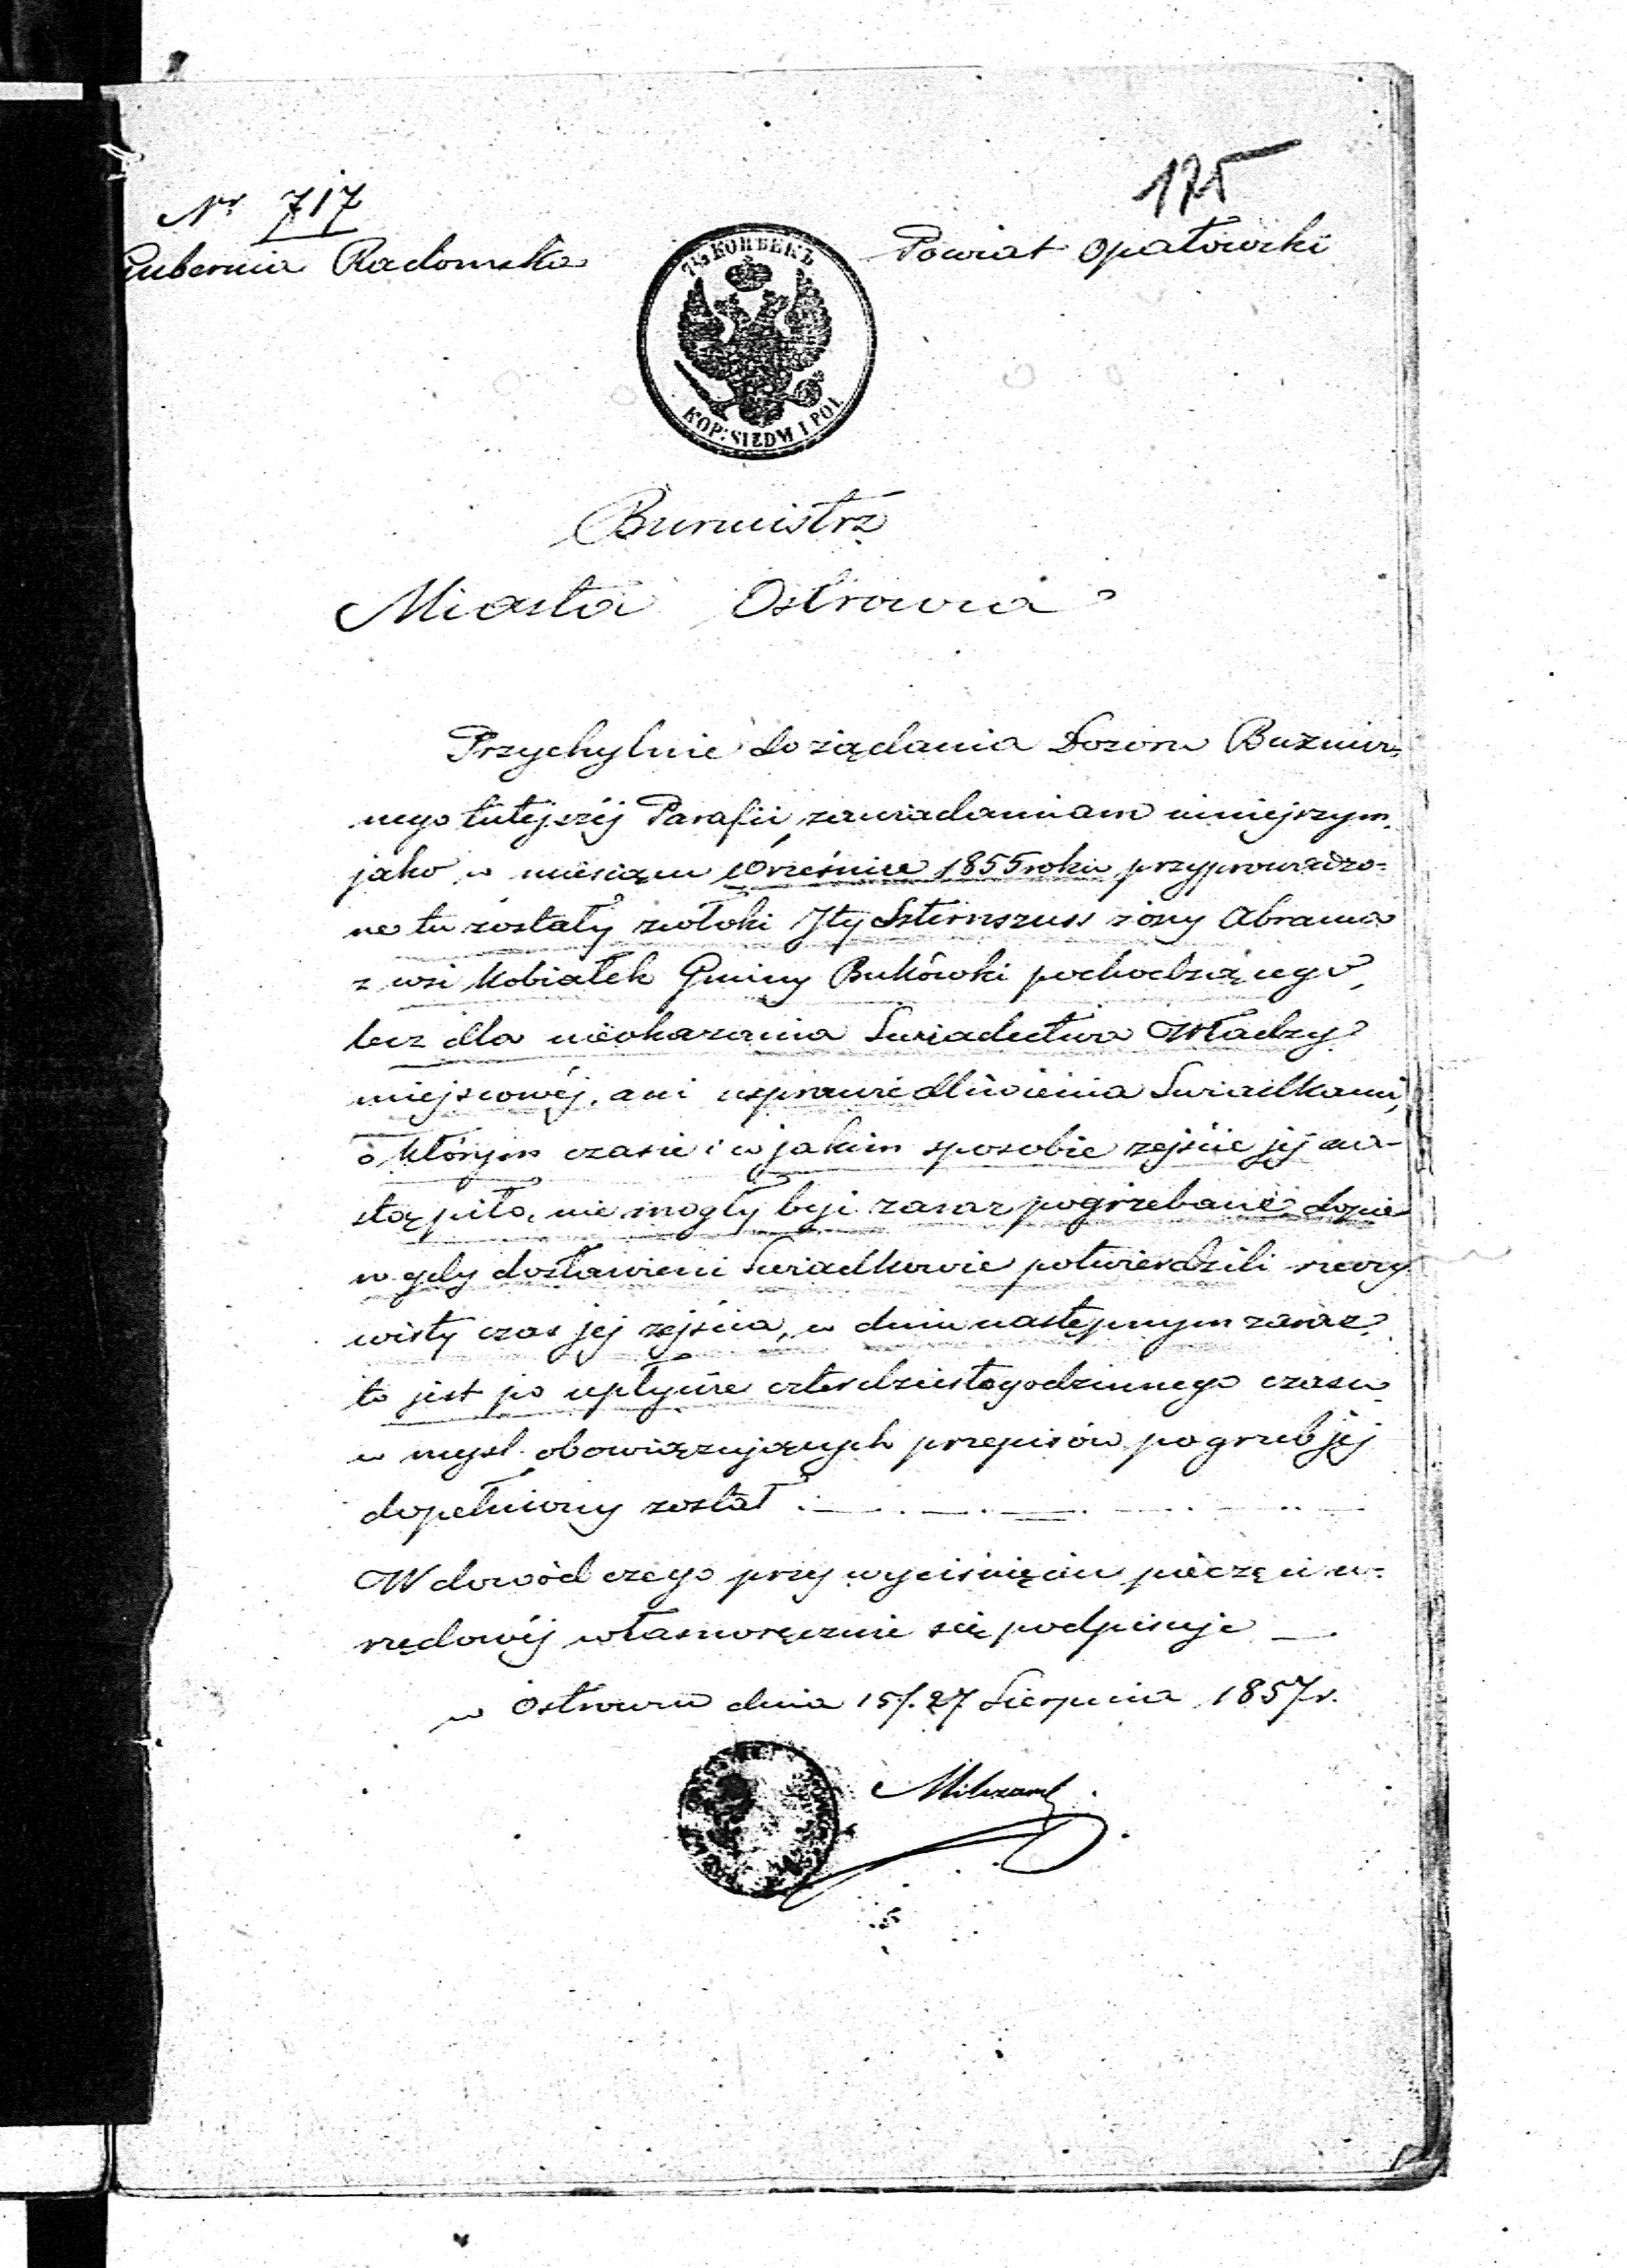 175
Nr 717
Gubernia Radomska
Powiat Opatowski
7½ КОПѢЕКЪ
KOP: SIEDM I POŁ
Burmistrz
Miasta Ostrowca
Przychylnie do ządania Dozoru Bużnicz,
nego tutejszéj Parafii, zawiadamiam niniejszym
jako w miesiącu Wrześniu 1855 roku przyprowadzo=
ne tu zostały zwłoki Ity Szternszuss żony Abrama
z wsi Kobiałek Gminy Bukówki pochodzącego,
lecz dla nieokazania Swiadectwa Władzy
miejscowéj, ani usprawiedliwienia Swiadkami,
o którym czasie i w jakim sposobie zejście jéj na-
stąpiło, nie mogły być zaraz pogrzebane dopie
ro gdy dostawieni Swiadkowie potwierdzili rzeczy
wisty czas jej zejścia, w dniu następnym zaraz
to jest po upływie czterdziestogodzinnego czasu
w mysl obowiązujących przepisów pogrzeb jéj
dopełniony został
W dowód czego przy wyciśnięciu pieczęci u=
rzędowéj własnoręcznie się podpisuje
w Ostrowcu dnia 15/27 Sierpnia 1857 r.